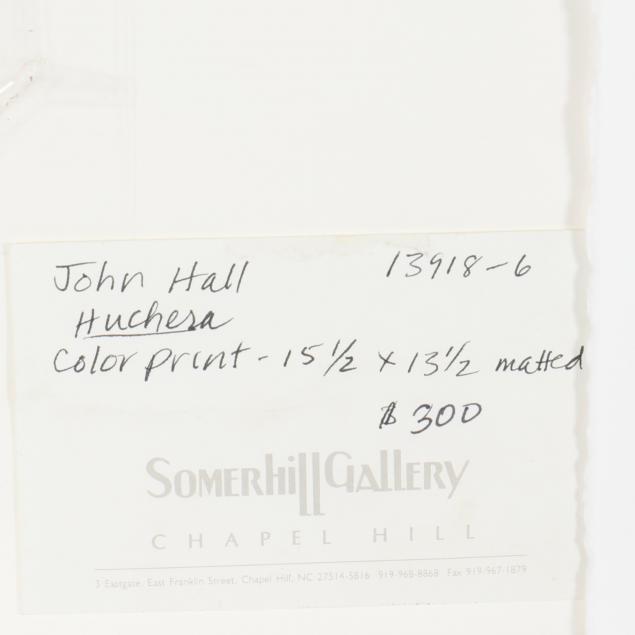 John Hall 13918-6
Huchesa
Color print - 15 1/2 x 13 1/2 matted
$ 300
SomerHill Gallery
CHAPEL HILL
3 Eastgate, East Franklin Street, Chapel Hill, NC 27514-5816 919-968-8868 Fax 919-967-1879